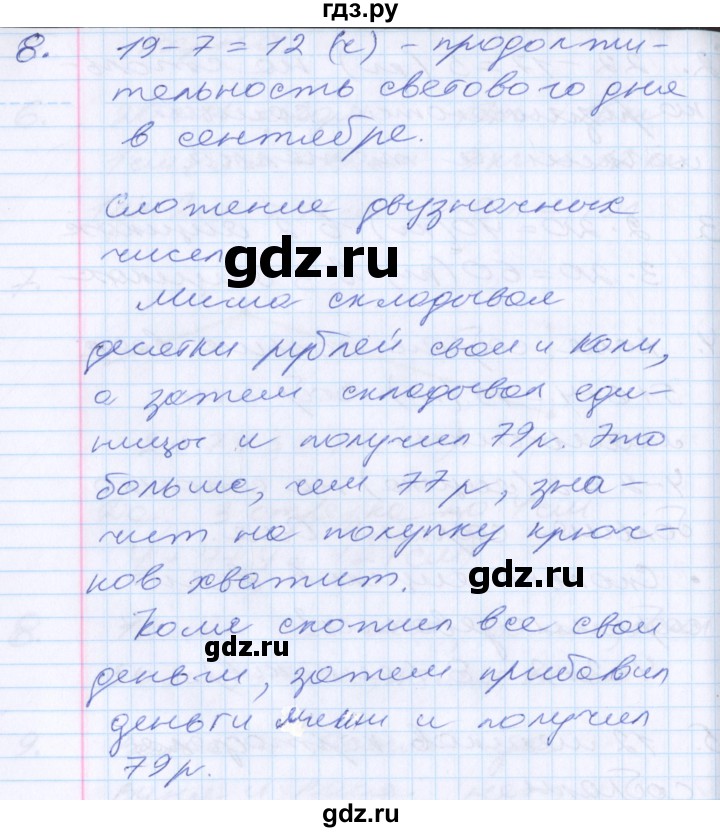 гдз.ру
8. 19-7=12 (ч) - продолжи-
тельность светового дня
в сентябре.
Сложение двузначных
чисел
gdz.ru
Миша складывал
десятки рублей свои и Коли,
а затем складывал еди-
ницы и получил 79р. Это
больше, чем 77р, зна-
чит на покупку крюч-
ков хватит.
gdz.ru
Коля сложил все свои
gdz.ru
деньги, затем прибавил
деньги Миши и получил
79р.
gdz.ru